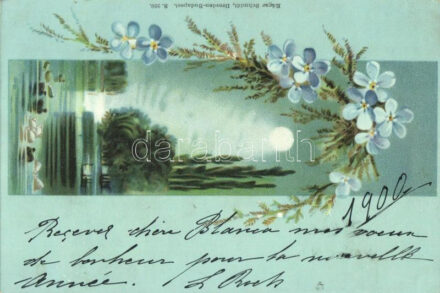 Edgar Schmidt, Dresden-Budapest.
darabanth
1900
Reçevez chère Blanca mes voeux
de bonheur pour la nouvelle
Année.